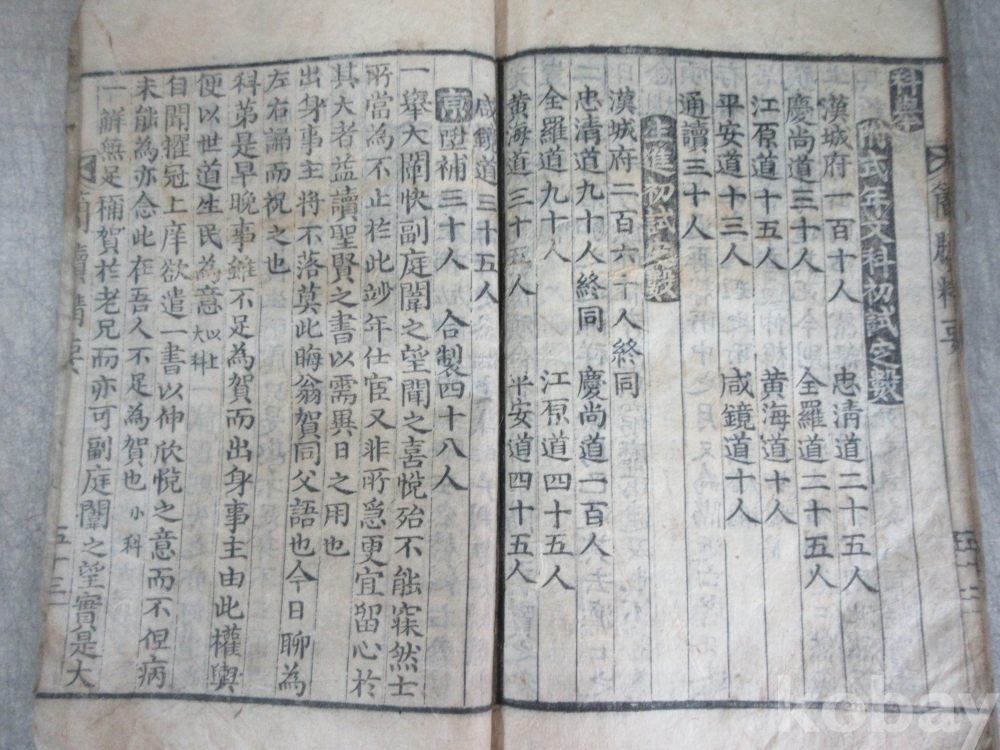 科擧
附式年文科初試之數
漢城府一百十人 忠清道二十五人
慶尚道三十人 全羅道二十五人
江原道十五人 黃海道十人
平安道十三人 咸鏡道十人
通讀三十人
生進初試之數
漢城府二百六十人終同
忠清道九十人終同 慶尚道一百人
全羅道九十人 江原道四十五人
黃海道三十五人 平安道四十五人
咸鏡道三十五人
陞補三十人 合製四十八人
一擧大闡快副庭闈之望聞之喜悅殆不能寐然士
所當為不止於此妙年仕宦又非所急更宜留心於
其大者益讀聖賢之書以需異日之用也
出身事主將不落莫此晦翁賀同父語也今日聊為
左右誦而祝之也
科第是早晚事雖不足為賀而出身事主由此權輿
便以世道生民為意 以上大科
自聞擢冠上庠欲遣一書以伸欣悅之意而不但病
未能為亦念此在吾人不足為賀也 小科
一解無足稱賀於老兄而亦可副庭闈之望實是大
簡牘精要
五十三
kobay